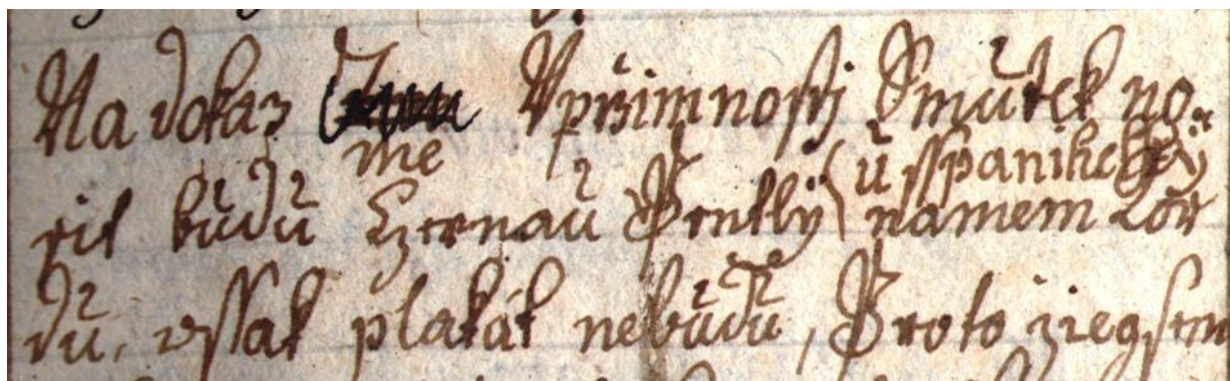 Na dokaz me Vpržimnosty Smutek no-
sit budu Czernau Pently u sspanihelsky
namem Kor
du, wssak plakat nebudu, Proto ziegsem